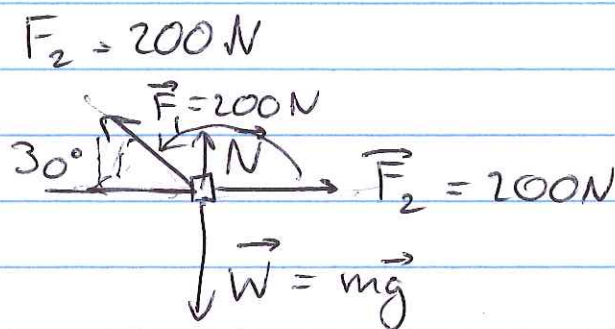 F₂ = 200 N
F⃗₁ = 200 N
30°
N
F⃗₂ = 200N
W⃗ = mg⃗